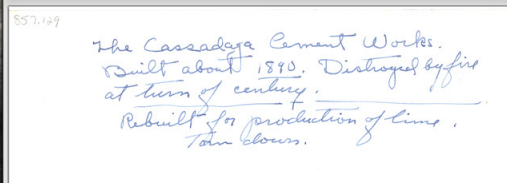 857.129
The Cassadaga Cement Works.
Built about 1890. Distroyed by fire
at turn of century.
Rebuilt for production of lime.
Torn down.